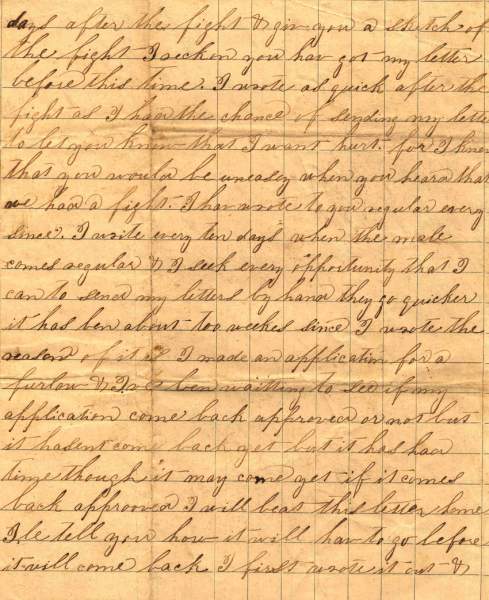 days after the fight & giv you a sketch of
the fight I reckon you hav got my letter
before this time. I wrote as quick after the
fight as I had the chance of sending my letter
to let you know that I want hurt. for I knew
that you would be uneasy when you heard that
we had a fight. I hav wrote to you regular every
since. I write every ten days when the male
comes regular & I seek every opportunity that I
can to send my letters by hand they go quicker
it has ben about too weekes since I wrote the
reason of it is I made an application for a
furlow & I ben waitting to see if my
application come back approved or not but
it hasent come back yet but it has had
time though it may come yet if it comes
back approoved I will beat this letter home
I le tell you how it will hav to go before
it will come back I first wrote it out &